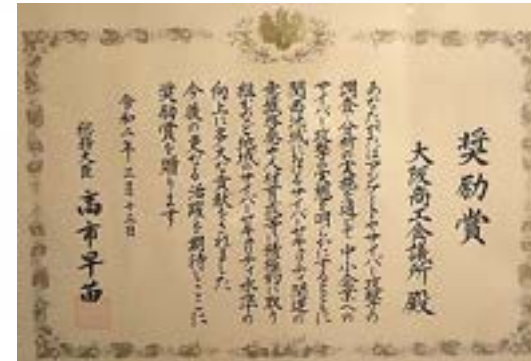 奨励賞
大阪商工会議所 殿
あなたがたはアンケートやサイバー攻撃の
調査・分析の実施を通じて、中小企業への
サイバー攻撃の実態を明らかにするとともに
関西地域におけるサイバーセキュリティ関連の
意識啓発や人材育成等に積極的に取り
組むなど地域のサイバーセキュリティ水準の
向上に多大な貢献をされました
今後の更なる活躍を期待しここに
奨励賞を贈ります
令和二年三月十三日
総務大臣 高市早苗